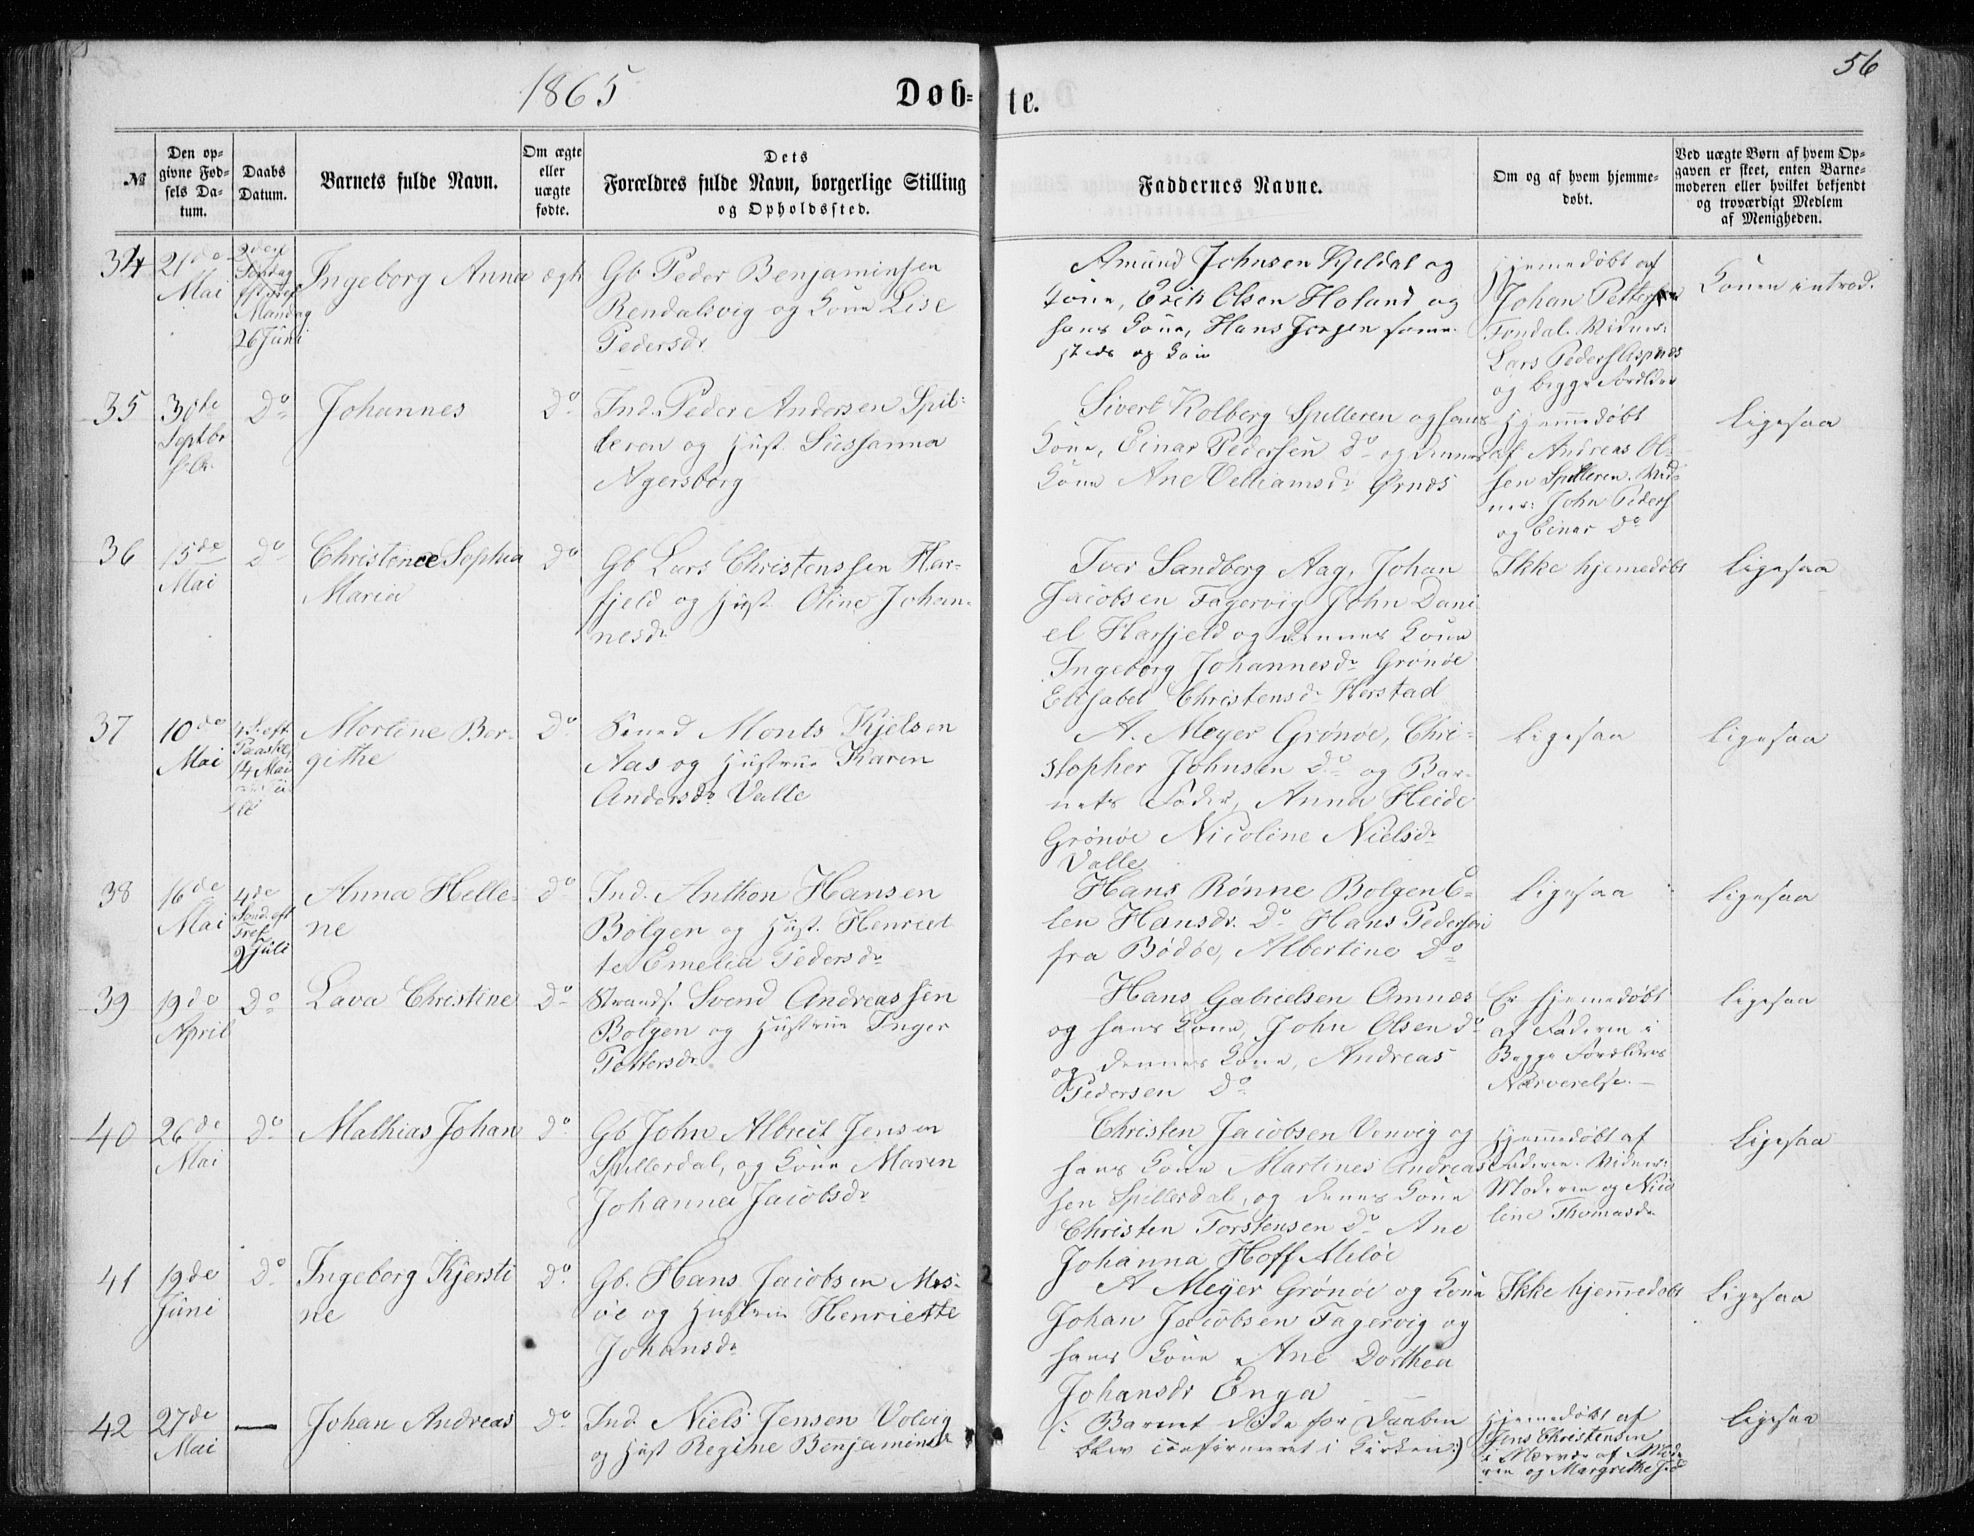 56
1865
Døb-
te.
№
Den op-
givne Fød-
sels Da-
tum.
Daabs
Datum.
Barnets fulde Navn.
Om ægte
eller
uægte
fødte.
Dets
Forældres fulde Navn, borgerlige Stilling
og Opholdssted.
Faddernes Navne.
Om og af hvem hjemme-
døbt.
Ved uægte Børn af hvem Op-
gaven er skeet, enten Barne-
moderen eller hvilket bekjendt
og troværdigt Medlem
af Menigheden.
34
21de
Mai
2den
Mandag
26 Juni
Ingeborg Anna
ægte
Gb Peder Benjaminsen
Rendalsvig og Kone Lise
Pedersdr
Amund Johnsen Kjeldal og
Kone, Erik Olsen Holand og
hans Kone, Hans Jørgen samme-
steds og Kone
Hjemedøbt af
Johan Pettersen
Tondal. Vidner:
Lars Peders Aspnes
og begge Forældre
Konen introd.
35
30te
Septbr
Do
Johannes
Do
Ind. Peder Andersen Spil-
leren og Hust. Sussanna
Agersborg
Sivert Kolberg Spilleren og hans
Kone, Einar Pedersen Do og dennes
Kone Ane Velliamsdr Ørnes
Hjemmedøbt
af Andreas Ol-
sen Spilleren. Vid-
ner: John Peders
og Einar Do
Ligesaa
36
15de
Mai
Do
Christence Sophia
Maria
Do
Gb Lars Christenssen Har-
fjeld og Hust. Oline Johan-
nesdr
Iver Sandberg Aag, Johan
Jacobsen Fagervig John Dani
el Harfjeld og dennes Kone
Ingeborg Johannesdr Grønøe
Elisabet Christensdr Herstad
Ikke hjemedøbt
Ligesaa
37
10de
Mai
4 S. eft.
Paaske
14 Mai
Mortine Ber-
githe
Do
Monts Kjelsen
Aas og Hustrue Karen
Andersdr Valle
A. Meyer Grønøe, Chri-
stopher Johnsen Do og Bar-
nets Fader, Anna Heide
Grønøe Nicoline Nielsdr
Valle
Ligesaa
Ligesaa
38
16de
Mai
4de
Sønd. eft
Tref.
9 Juli
Anna Helle-
ne
Do
Ind. Anthon Hansen
Bolgen og Hust. Henriet
te Emelia Pedersdr
Hans Rønne Bolgen E-
len Hansdr. Do Hans Pedersen
fra Bodøe, Albertine Do
Ligesaa
Ligesaa
39
19de
April
Do
Lava Christine
Do
Strands. Svend Andreassen
Bolgen og Hustrue Inger
Pettersdr
Hans Gabrielsen Omnæs
og hans Kone, John Olsen do
og dennes Kone, Andreas
Pedersen Do
Er hjemedøbt
af Faderen i
Begge Forældres
Nærverelse. —
Ligesaa
40
26de
Mai
Do
Mathias Johan
Do
Gb John Albreit Jensen
Spillerdal, og Kone Maren
Johanna Jacobsdr
Christen Jacobsen Venvig og
hans Kone Martines Andreas
sen Spillerdal, og dennes Kone
Christen Torstensen Do Ane
Johanna Hoff Meløe
Hjemedøbt af
Faderen. Vidner:
Moderen og Nico
line Thomasdr
Ligesaa
41
19de
Juni
Do
Ingeborg Kjersti
ne
Do
Gb. Hans Jacobsen Mes-
øe og Hustrue Henriette
Johansdr
A Meyer Grønøe og Kone
Johan Jacobsen Fagervig og
hans Kone Ane Dorthea
Johansdr Enga
Ikke hjemmedøbt
Ligesaa
42
27de
Mai
—
Johan Andreas
Do
Ind. Niels Jensen Volvig
og Hust Regine Benjaminsd
(: Barnet døde før Daaben
blev confirmeret i Kirken:)
Hjemedøbt af
Jens Christensen
i Nærvær af Mode
ren og Margrethe
Ligesaa